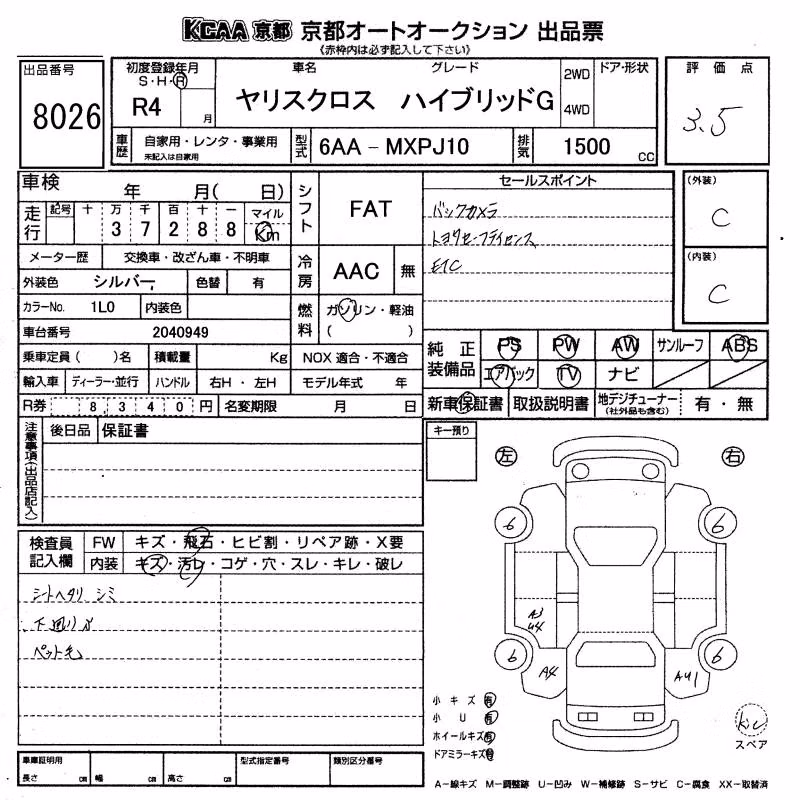 KCAA 京都 京都オートオークション 出品票
《赤枠内は必ず記入して下さい》
出品番号
8026
初度登録年月
S・H・R
R4 月
車名 グレード
ヤリスクロス ハイブリッドG
2WD
4WD
ドア・形状
評価点
3.5
車歴
自家用・レンタ・事業用
未記入は自家用
型式
6AA－MXPJ10
排気
1500 cc
車検 年 月( 日)
走行
記号 十 万 千 百 十 一 マイル
3 7 2 8 8 Km
メーター歴 交換車・改ざん車・不明車
外装色 シルバー, 色替 有
カラーNo. 1L0 内装色
車台番号 2040949
乗車定員( )名 積載量 Kg
輸入車 ディーラー・並行 ハンドル 右H・左H
R券 8,340円 名変期限 月 日
シフト FAT
冷房 AAC 無
燃料 ガソリン・軽油
( )
NOX 適合・不適合
モデル年式 年
セールスポイント
バックカメラ
トヨタセーフティセンス
ETC
(外装)
C
(内装)
C
純正装備品
PS PW AW サンルーフ ABS
エアバック TV ナビ
新車保証書 取扱説明書 地デジチューナー
(社外品も含む) 有・無
注意事項(出品店記入)
後日品 保証書
キー預り
左 右
検査員記入欄
FW キズ・飛石・ヒビ割・リペア跡・X要
内装 キズ・汚レ・コゲ・穴・スレ・キレ・破レ
シートヘタリ シミ
下廻りサ
ペット毛
6 6
A3
U4
6 6
A4 AU1
小キズ 有
小U 有
ホイールキズ 有
ドアミラーキズ 有
スペア
車庫証明用
長さ cm 幅 cm 高さ cm
型式指定番号
類別区分番号
A－線キズ M－調整跡 U－凹み W－補修跡 S－サビ C－腐食 XX－取替済